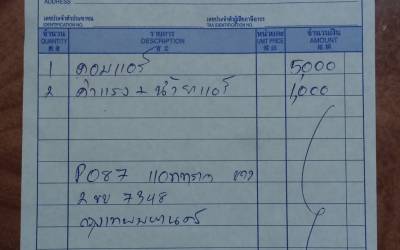 ADDRESS
เลขประจำตัวประชาชน เลขประจำตัวผู้เสียภาษีอากร
IDENTIFICATION NO. TAX IDENTIFICATION NO.
จำนวน รายการ หน่วยละ จำนวนเงิน
QUANTITY DESCRIPTION UNIT PRICE AMOUNT
1 คอมแอร์ 5,000
2 ค่าแรง + น้ำยาแอร์ 1,000
P087 ขาว
2 ขบ 7348
กรุงเทพมหานคร